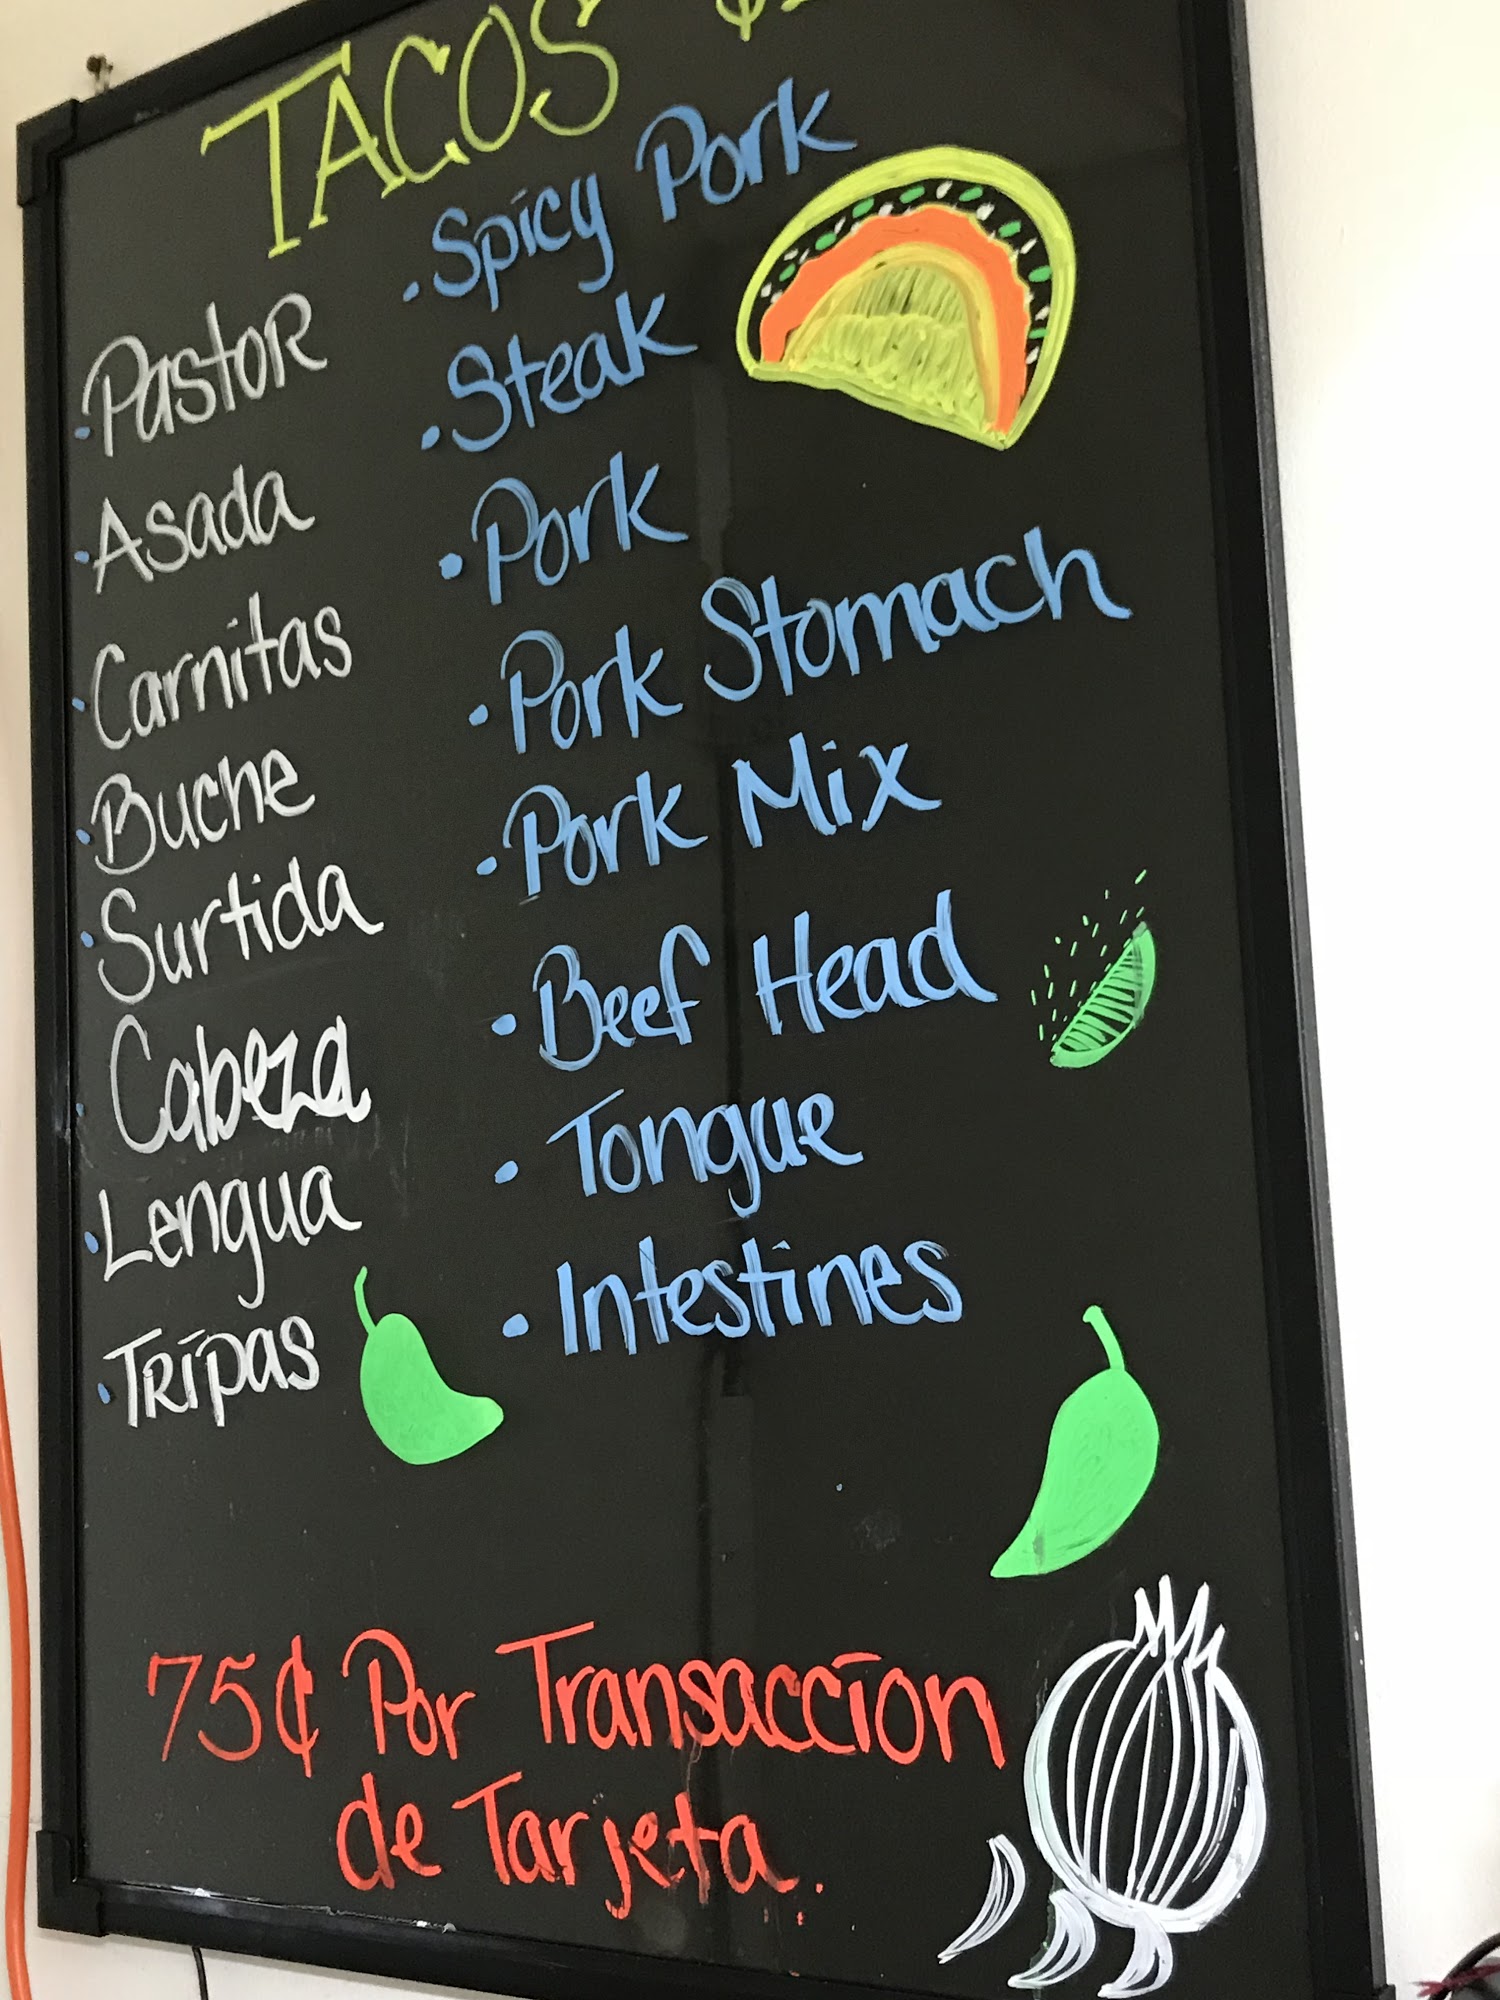 TACOS
Pastor · Spicy Pork
Asada · Steak
Carnitas · Pork
Buche · Pork Stomach
Surtida · Pork Mix
Cabeza · Beef Head
Lengua · Tongue
Tripas · Intestines
75¢ Por Transaccíon
de Tarjeta.